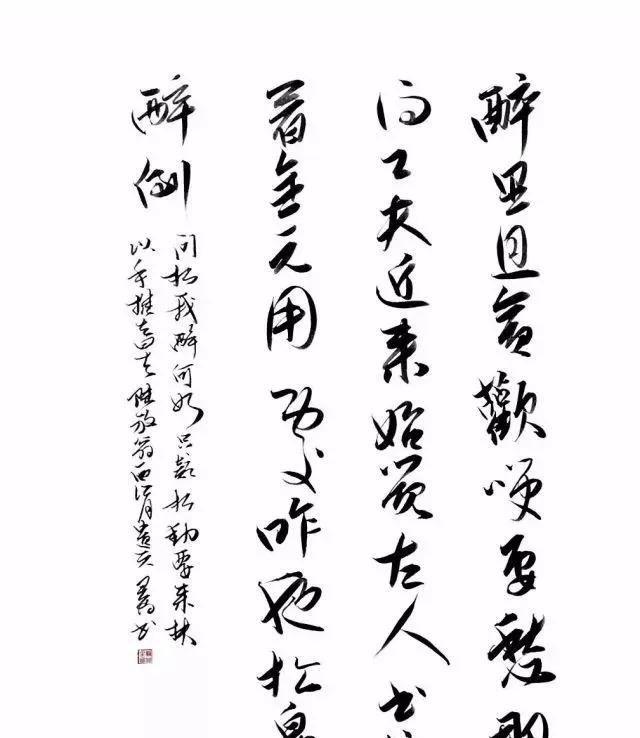 醉里且貪歡咲要愁那
得工夫近来始覺古人书
着全无用處昨夜松邊
醉倒
问松我醉何如只疑松動要来扶
以手推松曰去陸放翁西江月遣兴书